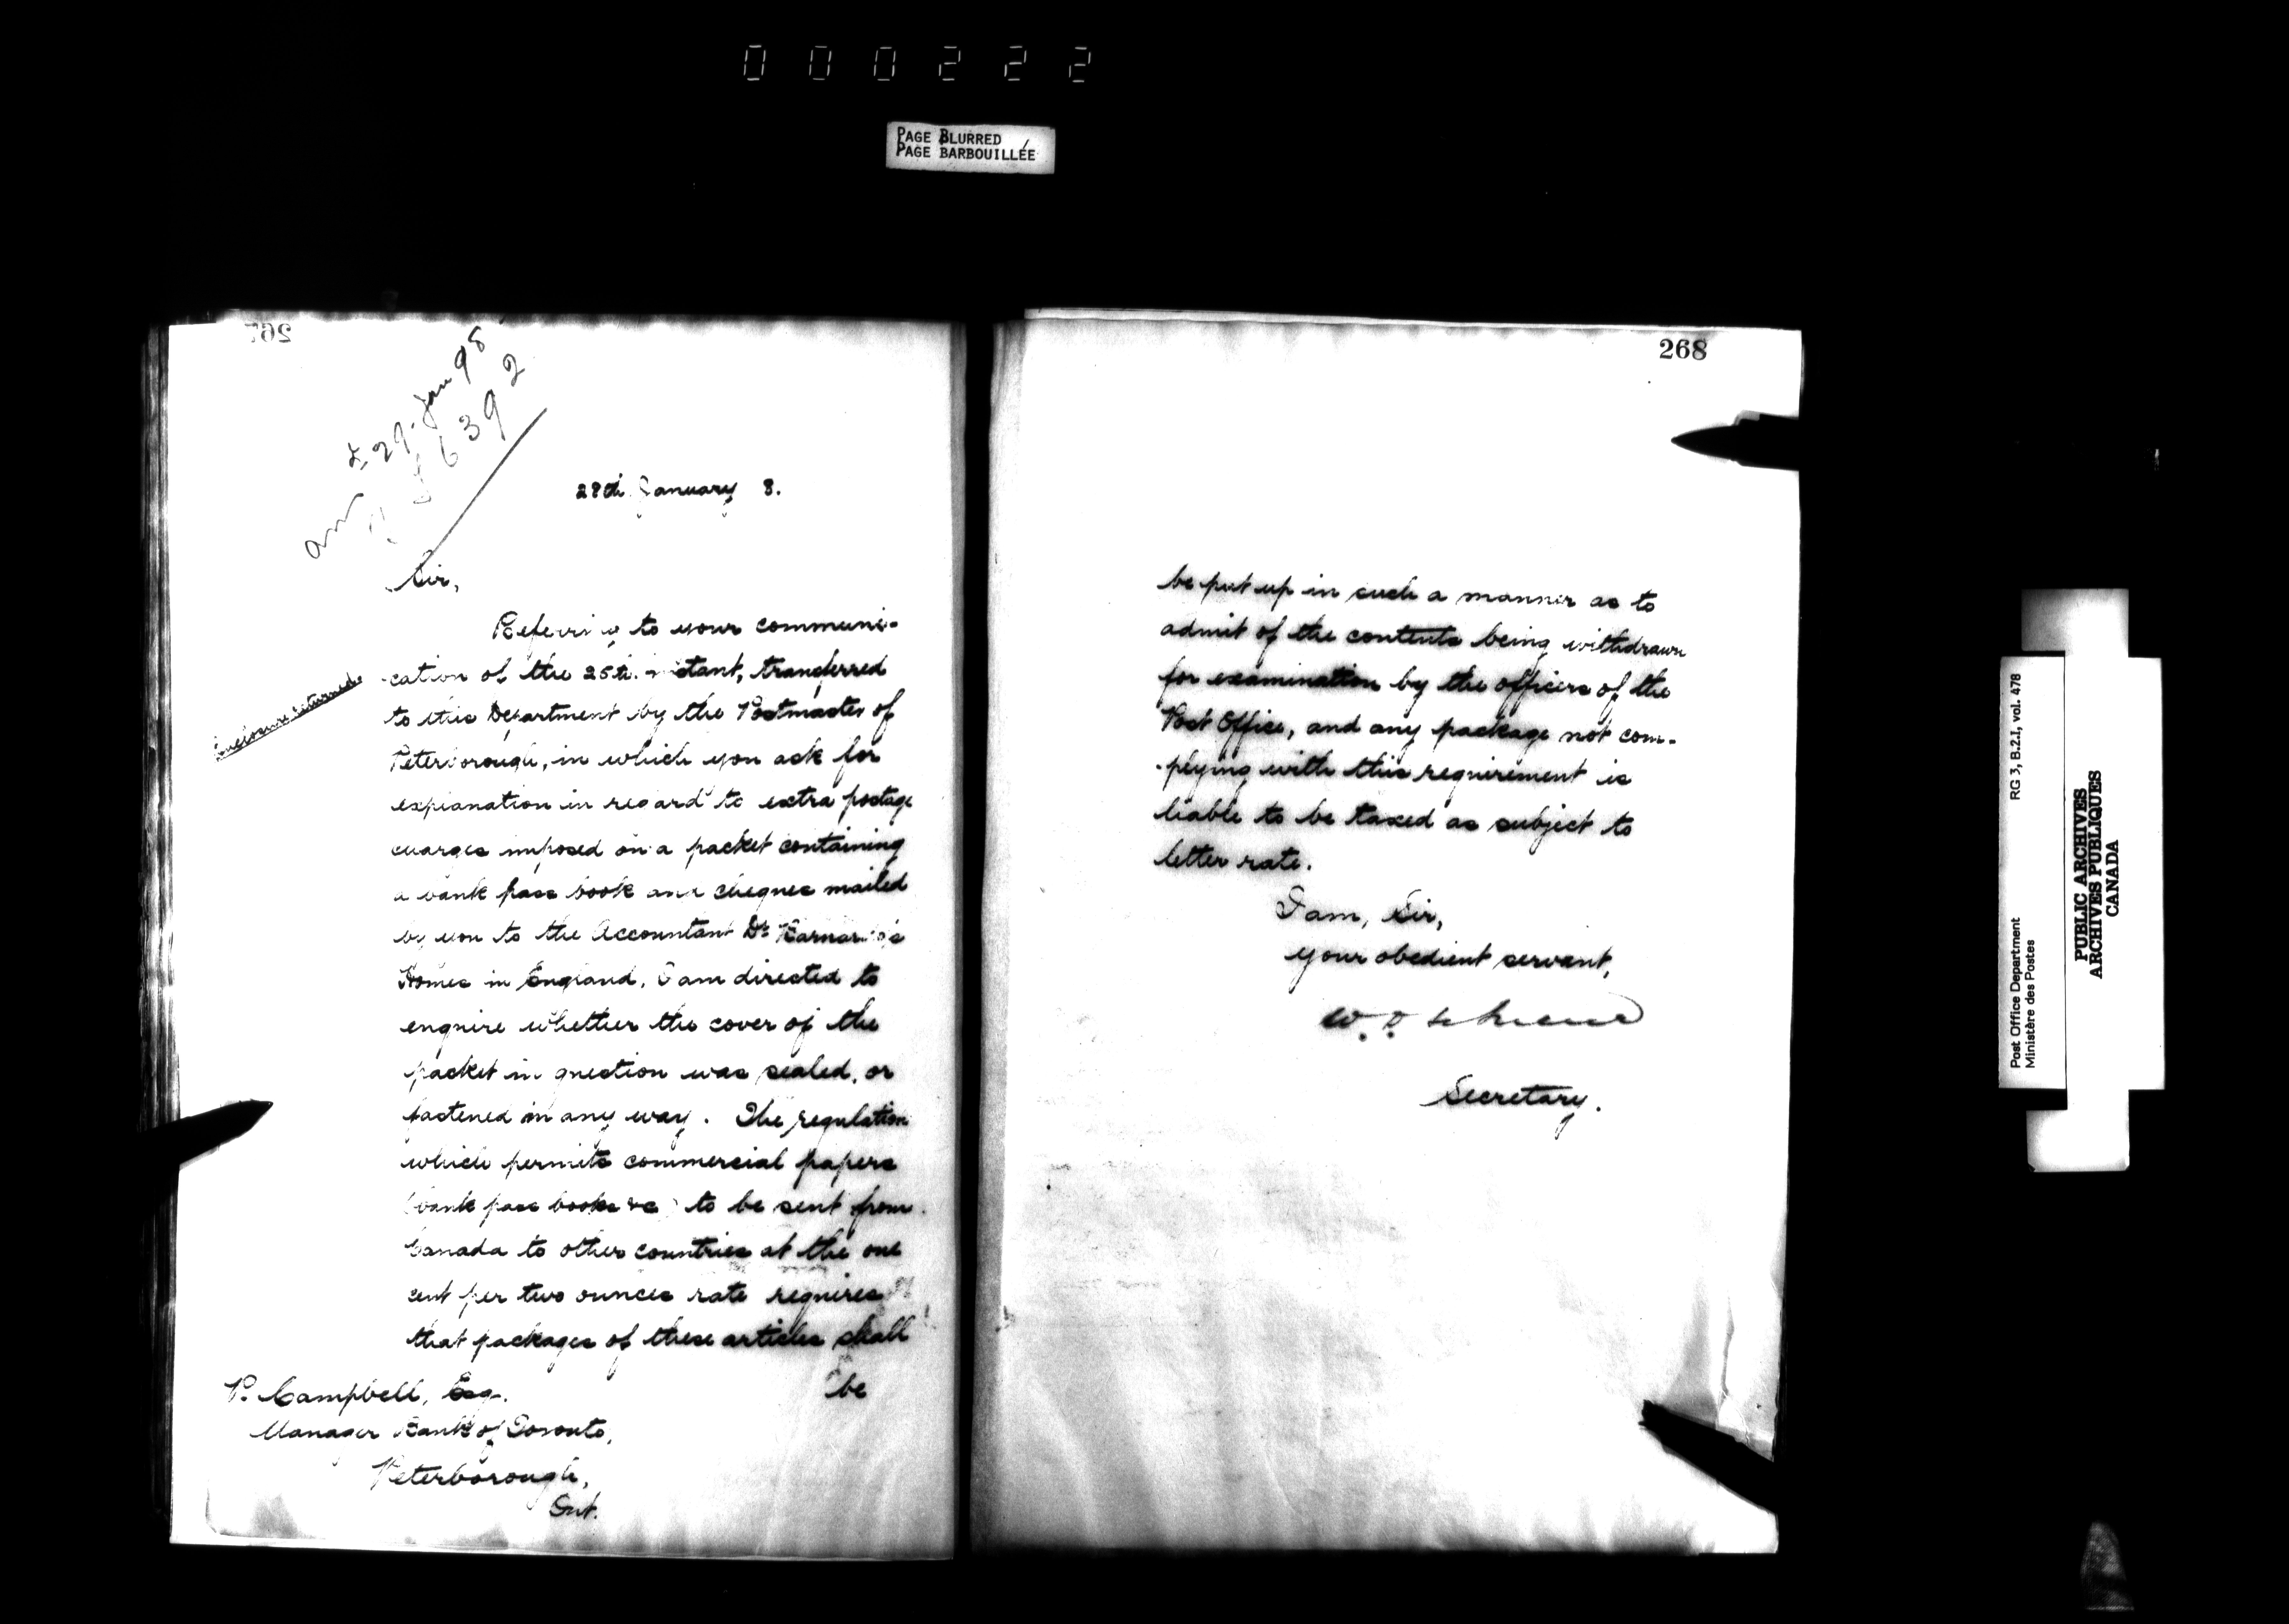 000222
PAGE BLURRED
PAGE BARBOUILLÉE
267
ans 29. Jan 98
6392
28th January 8.
Sir,
Referring to your communi-
cation of the 25th. instant, transferred
to this Department by the Postmaster of
Peterborough, in which you ask for
explanation in regard to extra postage
charges imposed on a packet containing
a bank pass book and cheques mailed
by you to the Accountant Dr Barnardo's
Homes in England, I am directed to
enquire whether the cover of the
packet in question was sealed, or
fastened in any way. The regulation
which permits commercial papers
(bank pass books &c) to be sent from
Canada to other countries at the one
cent per two ounces rate requires
that packages of these articles shall
be
Enclosure returned.
P. Campbell, Esq.
Manager Bank of Toronto,
Peterborough,
Ont.
268
be put up in such a manner as to
admit of the contents being withdrawn
for examination by the officers of the
Post Office, and any package not com-
-plying with this requirement is
liable to be taxed as subject to
letter rate.
I am, Sir,
your obedient servant,
W. D.
Secretary.
Post Office Department RG 3, B.2.I, vol. 478
Ministère des Postes
PUBLIC ARCHIVES
ARCHIVES PUBLIQUES
CANADA